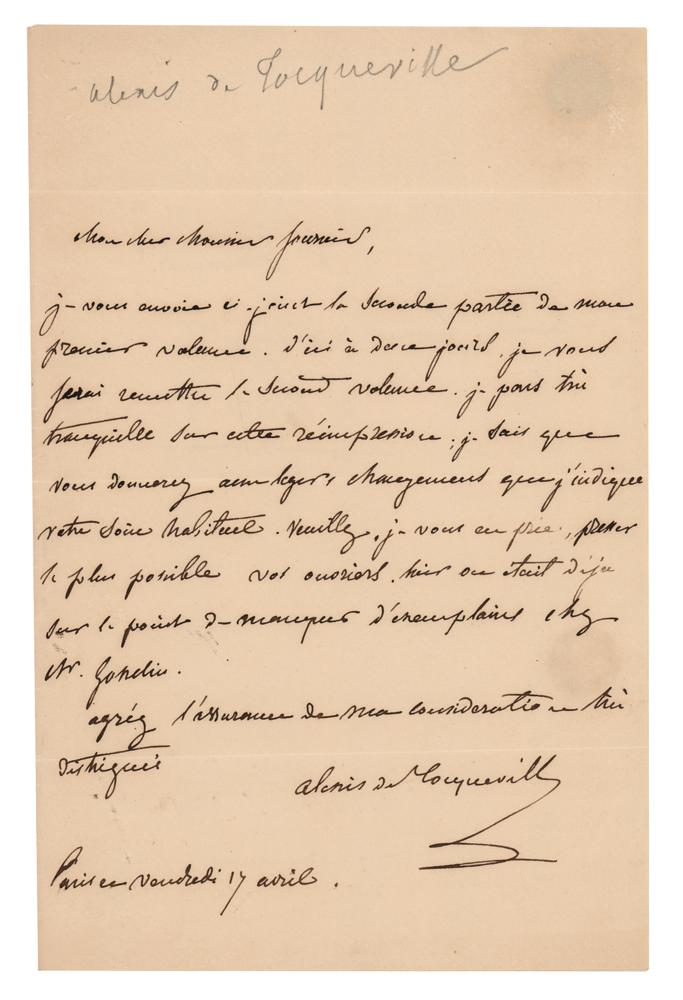 alexis de Tocqueville
Mon cher Monsieur fournier,
je vous envoie ci-joint la seconde partie de mon
premier volume. d'ici à deux jours, je vous
ferai remettre le second volume. je pars très
tranquille sur cette réimpression ; je sais que
vous donnerez aux légers changements que j'indique
votre soin habituel. veuillez, je vous en prie, presser
le plus possible vos ouvriers. hier on était déjà
sur le point de manquer d'exemplaires chez
Mr. Gosselin.
agréez l'assurance de ma considération très
distinguée
alexis de Tocqueville
Paris ce vendredi 17 avril.